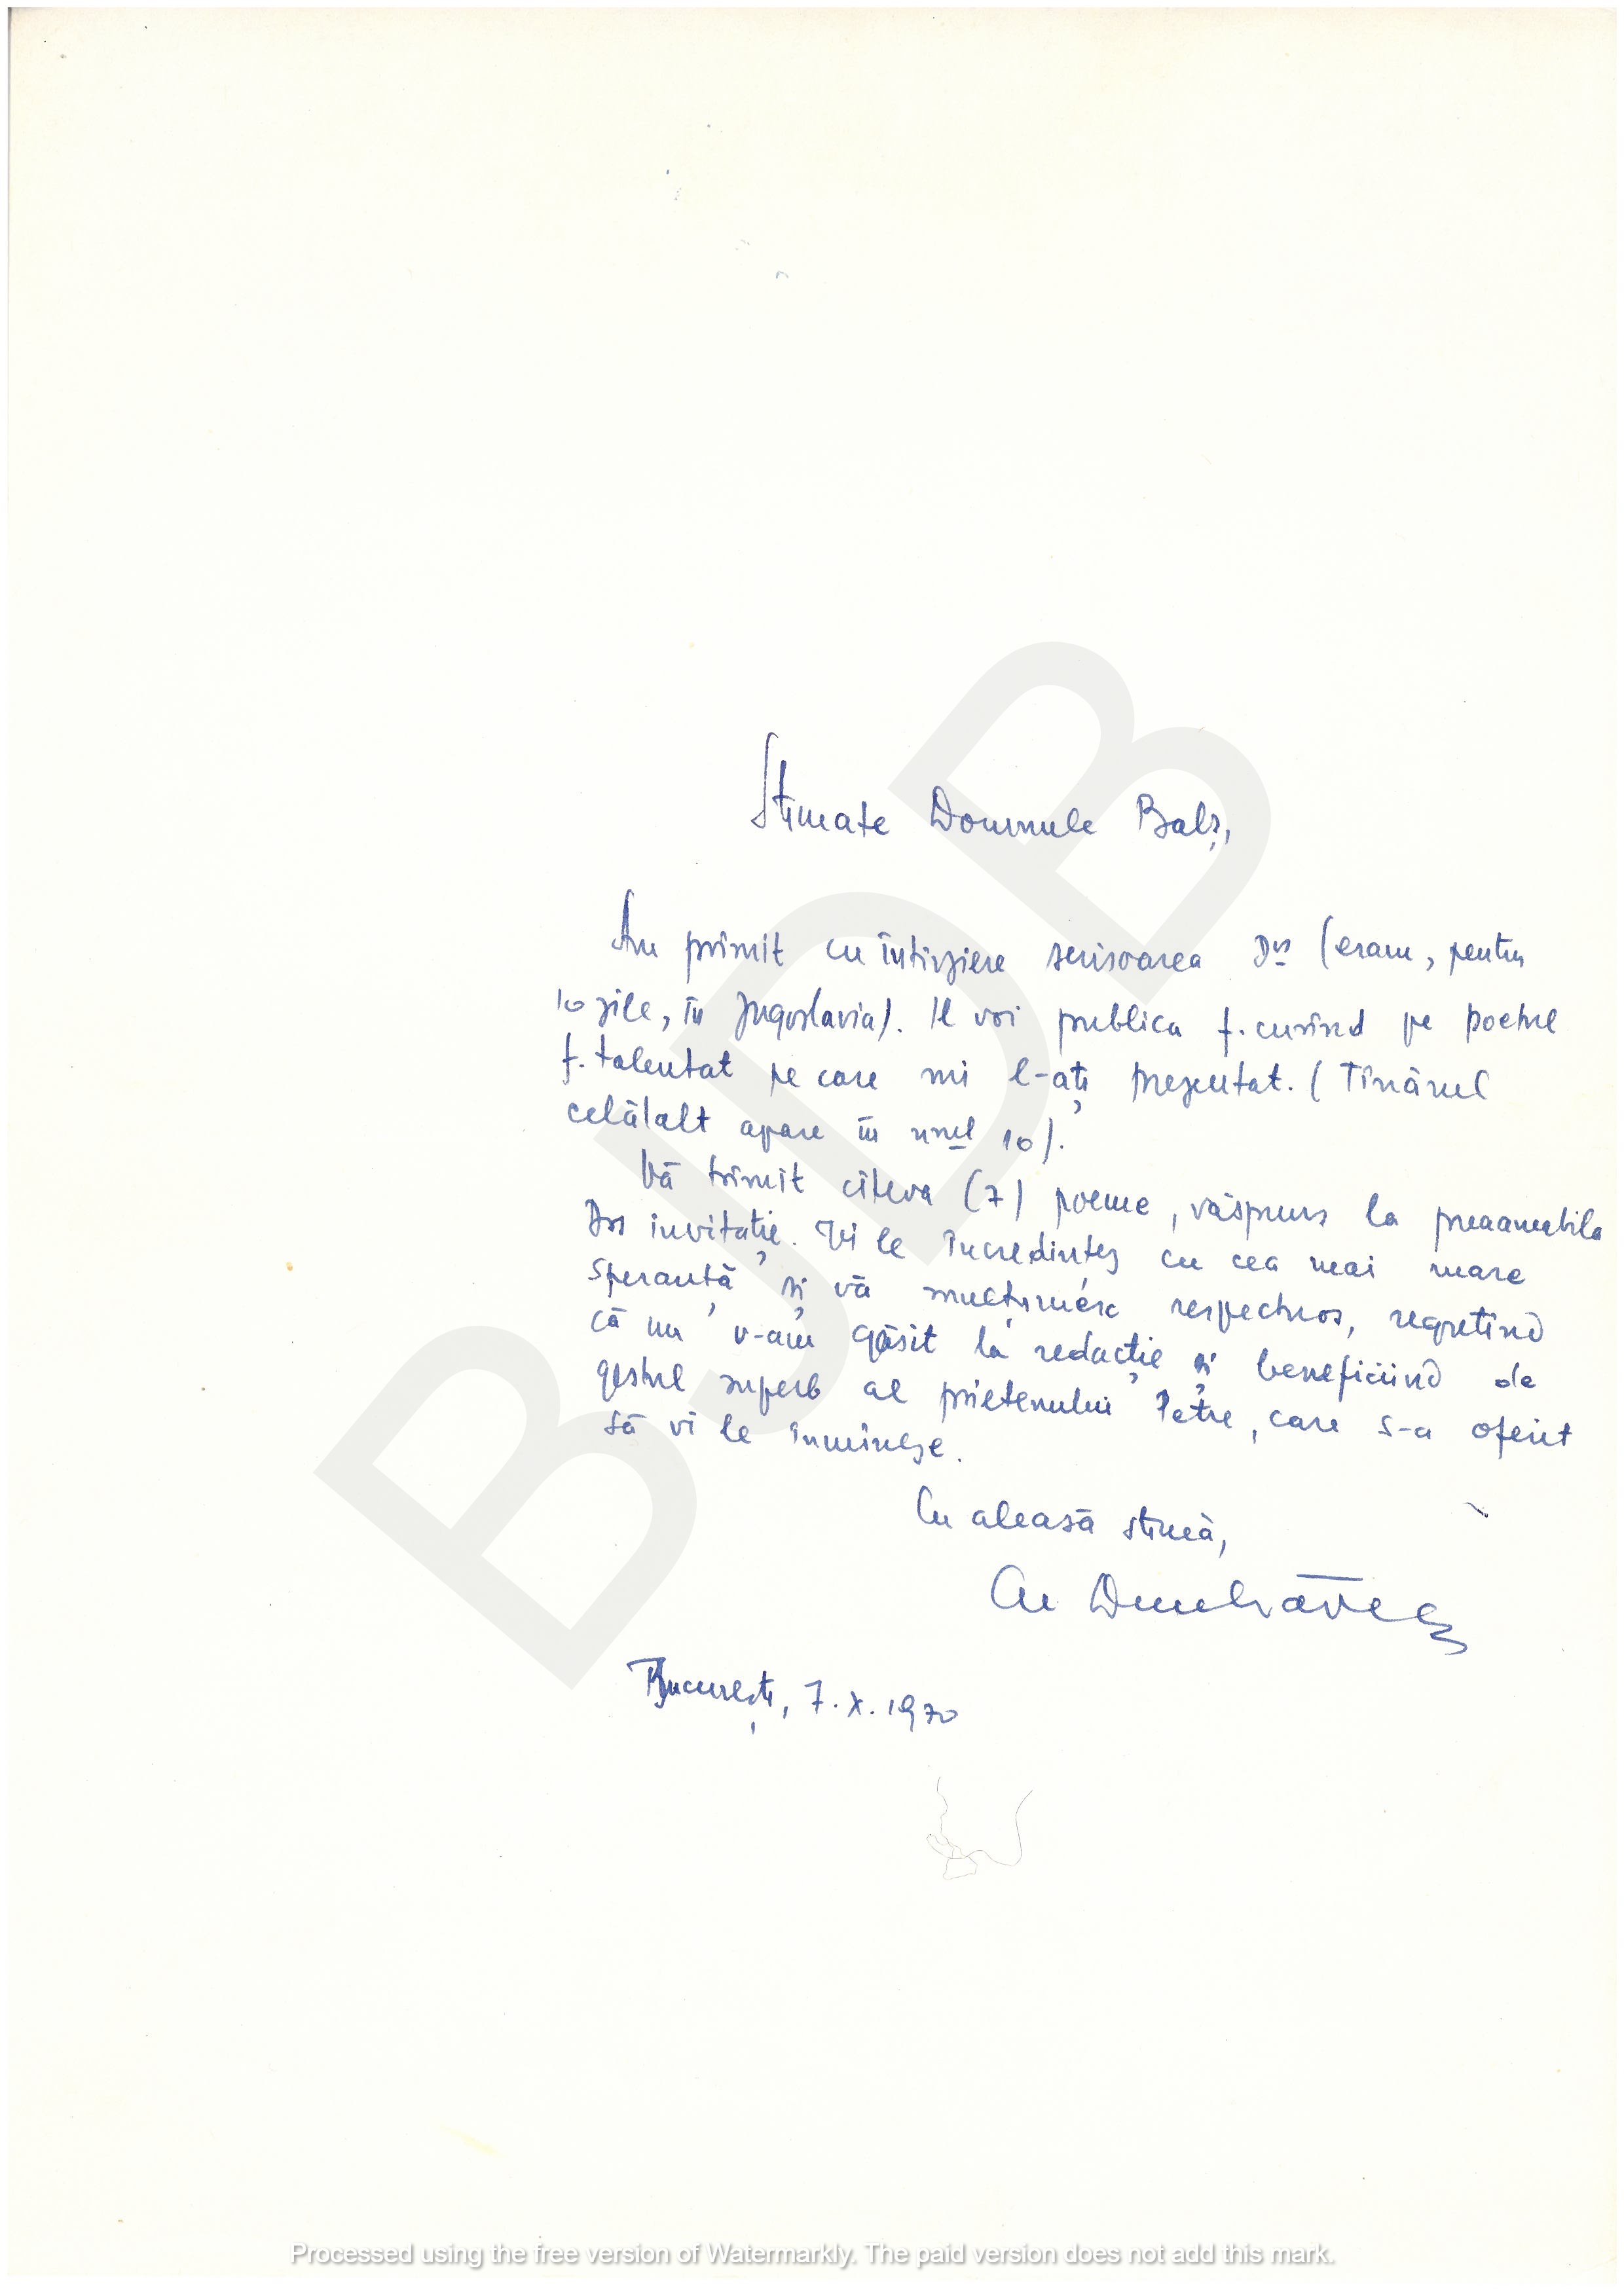 Stimate Domnule Balș,
Am primit cu întîrziere scrisoarea Dvs (eram, pentru
10 zile, în Jugoslavia). Îl voi publica f. curînd pe poetul
f. talentat pe care mi l-ați prezentat. (Tînărul
celălalt apare în nrul 10).
Vă trimit cîteva (7) poeme, răspuns la preaamabila
Dvs invitație. Vi le încredințez cu cea mai mare
speranță și vă mulțumesc respectuos, regretînd
că nu v-am găsit la redacție și beneficiind de
gestul superb al prietenului Petre, care s-a oferit
să vi le înmîneze.
Cu aleasă stimă,
București, 7.X.1970
BJDB
Processed using the free version of Watermarkly. The paid version does not add this mark.